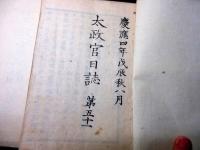 慶應四年戊辰秋八月
太政官日誌
第五十一